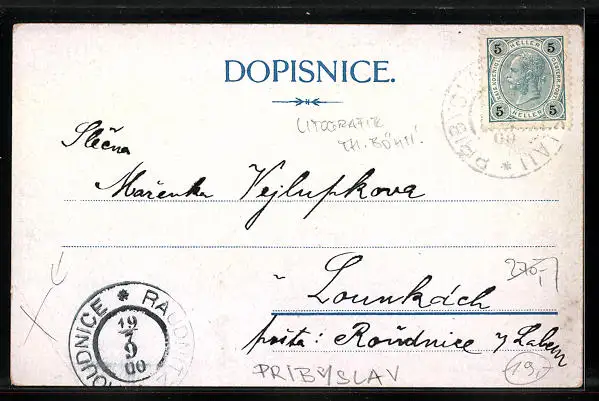 DOPISNICE.
5 HELLER 5
5 HELLER 5
LITOGRAFIE
TH. BÖHM!
Slečna
Mařenka Vejlupkova
v
Lounkách
pošta: Roudnice n/Labem
ROUDNICE * RAUDNITZ
19
9
00
PRIBYSLAV
270,-
19,-